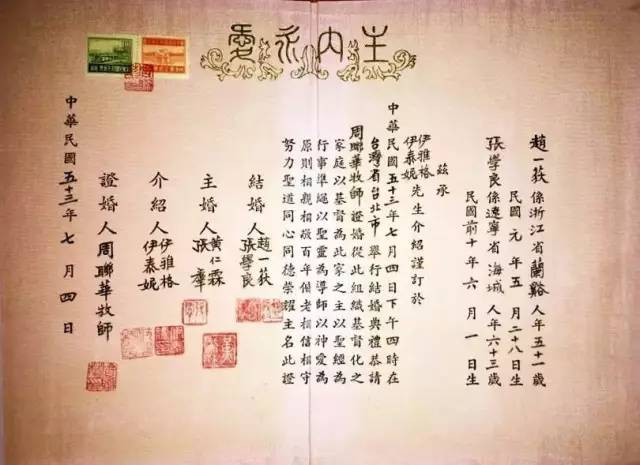 主內永愛
趙一荻係浙江省蘭谿人年五十一歲
民國元年五月二十八日生
張學良係遼寧省海城人年六十三歲
民國前十年六月一日生
茲承
伊雅格
伊泰妮先生介紹謹訂於
中華民國五十三年七月四日下午四時在
台灣省台北市舉行結婚典禮恭請
周聯華牧師證婚從此組織基督化之
家庭以基督為此家之主以聖經為
行事準繩以聖靈為導師以神愛為
原則相親相敬百年偕老相信相守
努力聖道同心同德榮耀主名此證
結婚人趙一荻
張學良
主婚人黃仁霖
張羣
介紹人伊雅格
伊泰妮
證婚人周聯華牧師
中華民國五十三年七月四日